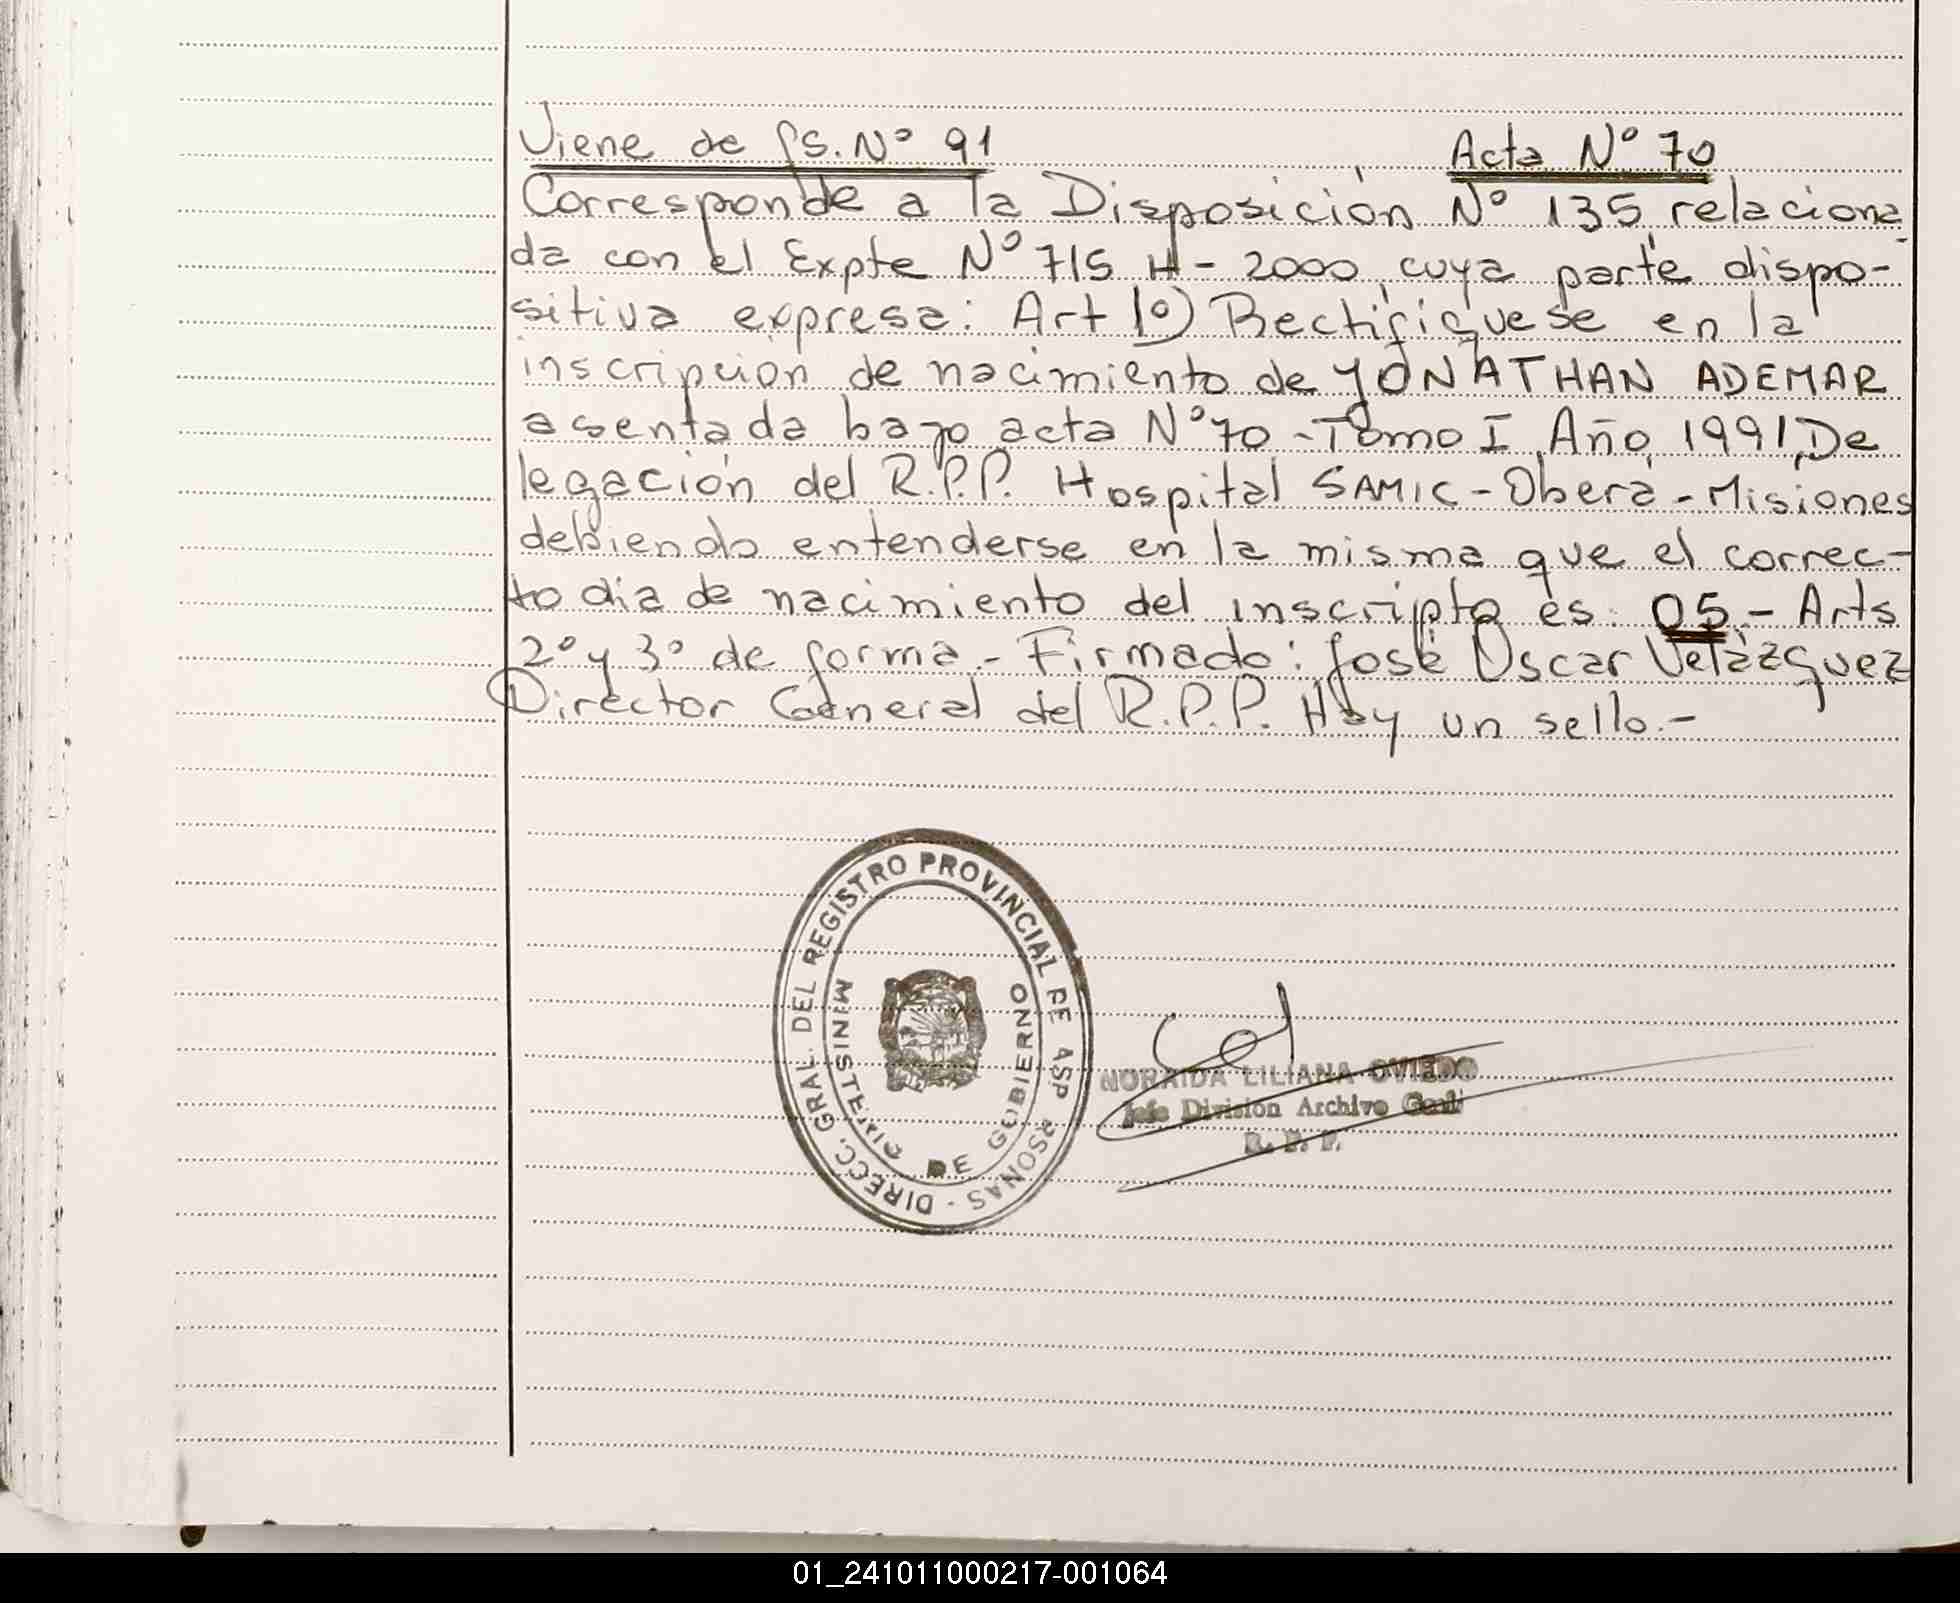 Viene de fs. Nº 91 Acta Nº 70
Corresponde a la Disposición Nº 135, relaciona
da con el Expte Nº 715 H - 2000, cuya parte dispo-
sitiva expresa: Art 1º) Rectifíquese en la
inscripción de nacimiento de YONATHAN ADEMAR
asentada bajo acta Nº 70 - Tomo I, Año, 1991, De
legación del R.P.P. Hospital SAMIC - Oberá - Misiones
debiendo entenderse en la misma que el correc-
to dia de nacimiento del inscripto es: 05.- Arts
2º y 3º de forma.- Firmado: José Oscar Velázquez
Director General del R.P.P. Hay un sello.-
DIRECC. GRAL. DEL REGISTRO PROVINCIAL DE PERSONAS -
MINISTERIO DE GOBIERNO
NORAIDA LILIANA OVIEDO
Jefe División Archivo Gral.
R. P. P.
01_241011000217-001064